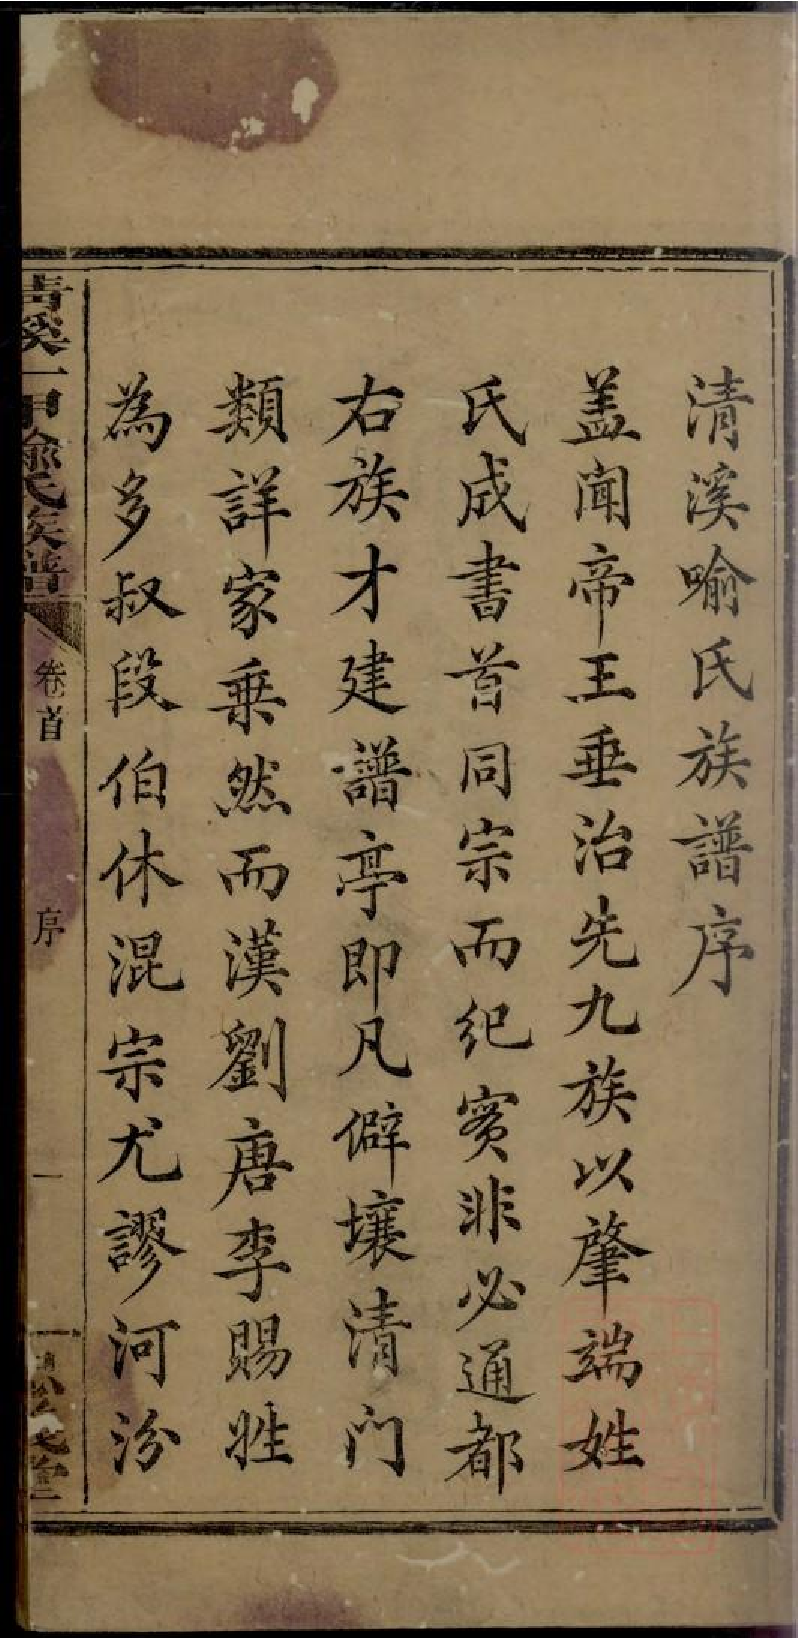 清溪喻氏族譜序
盖闻帝王垂治先九族以肇端姓
氏成書首同宗而纪賓非必通都
右族才建譜亭即凡僻壤清门
類詳家乗然而漢劉唐李賜姓
為多叔段伯休混宗尤謬河汾
清溪一甲喻氏族譜
卷首
序
一